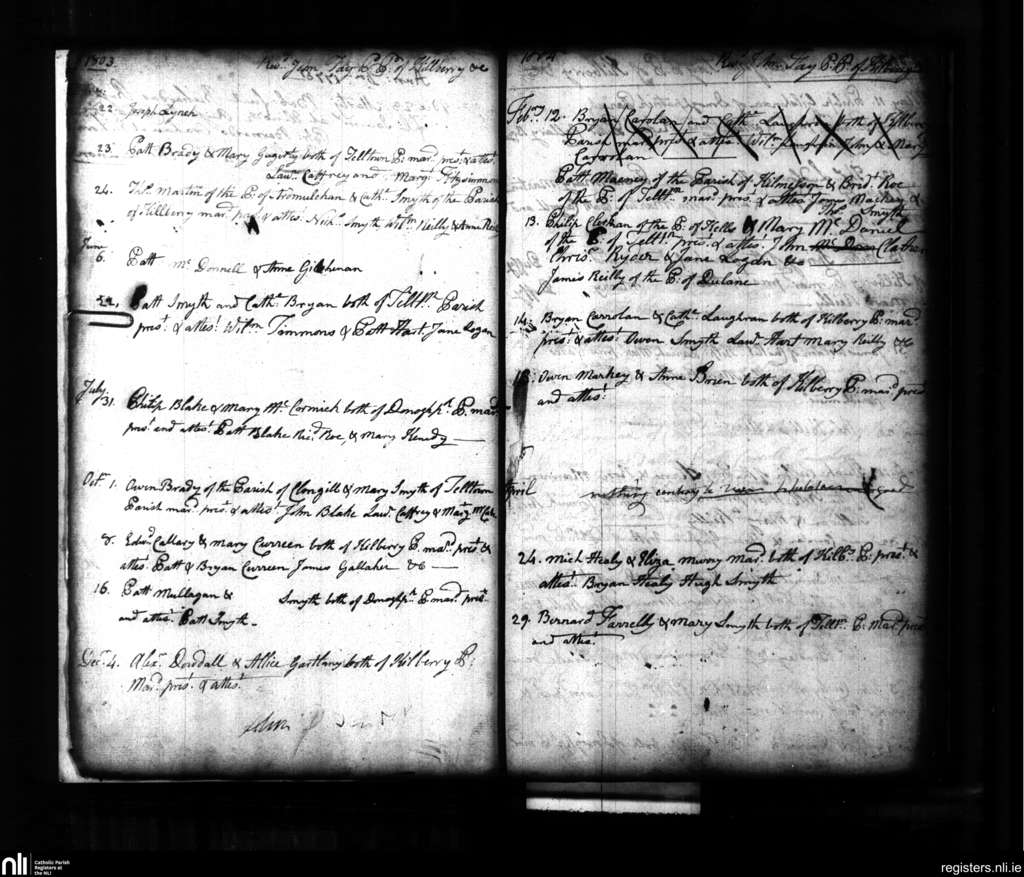 1803
Revd. John Tay P. Pt. of Kilberry &c
22. Joseph Lynch
23. Patt Brady & Mary Gugerty both of Telltown P: mard. prest. & attest.
Lawe. Caffrey and Margt. Fitzsimmons
24. Thos. Martin of the P. of Dromulchan & Cathe. Smyth of the Parish
of Kilberry mard. pres. & attes. Nichs. Smyth Willm. Reilly & Anne Reilly
June
6. Patt Mc. Donnell & Anne Gilshenan
22. Patt Smyth and Cathe. Bryan both of Telltn. Parish
prest. & attest. Willm. Timmons & Patt Hart Jane Logan
July 31. Philip Blake & Mary Mc. Cormick both of Donoghpt. P. mard.
prest. and attest. Patt Blake Richd. Roe, & Mary Kenedy
Octr. 1. Owen Brady of the Parish of Clongill & Mary Smyth of Telltown
Parish mard. prest. & attest. John Blake Lawe. Caffrey & Mary McCabe
8. Edwd. Callary & Mary Curreen both of Kilberry P. mard. prest. &
attest. Patt & Bryan Curreen James Gallaher &c
16. Patt Mullagan & Smyth both of Donoghpt. P. mard. prest.
and attest. Patt Smyth
Decr. 4. Alexr. Dowdall & Allice Gartlany both of Kilberry P:
Mard. prest. & attest.
1804
Revd. John Tay P. P. of Kilberry &c
Feby. 12. Bryan Carolan and Cathe. Laughran both of Kilberry
Parish mard. prest. & attest. John & Mary
Carolan
Patt Mackey of the Parish of Kilmesson & Bridt. Roe
of the P. of Telltn. mard. pres. & attes. James Mackey &
Thos. Smyth
13. Philip Cleehan of the P. of Kells & Mary Mc. Daniel
of the P. of Telltn. pres. & attes. John Mc. Dan Clather
Chrisr. Ryder & Jane Logan &c
James Reilly of the P. of Dulane
14. Bryan Carrolan & Cathe. Laughran both of Kilberry P. mard.
prest. & attest. Owen Smyth Lawe. Hart Mary Reilly &c
18. Owen Markey & Anne Brien both of Kilberry P: mard. prest.
and attest.
April
24. Mich Healy & Eliza. Murry mard. both of Kilby. P. prest. &
attest. Bryan Healy Hugh Smyth
29. Bernard Farrelly & Mary Smyth both of Telltn. P: Mard. prest.
and attest.
nli
Catholic Parish
Registers at
the NLI
registers.nli.ie